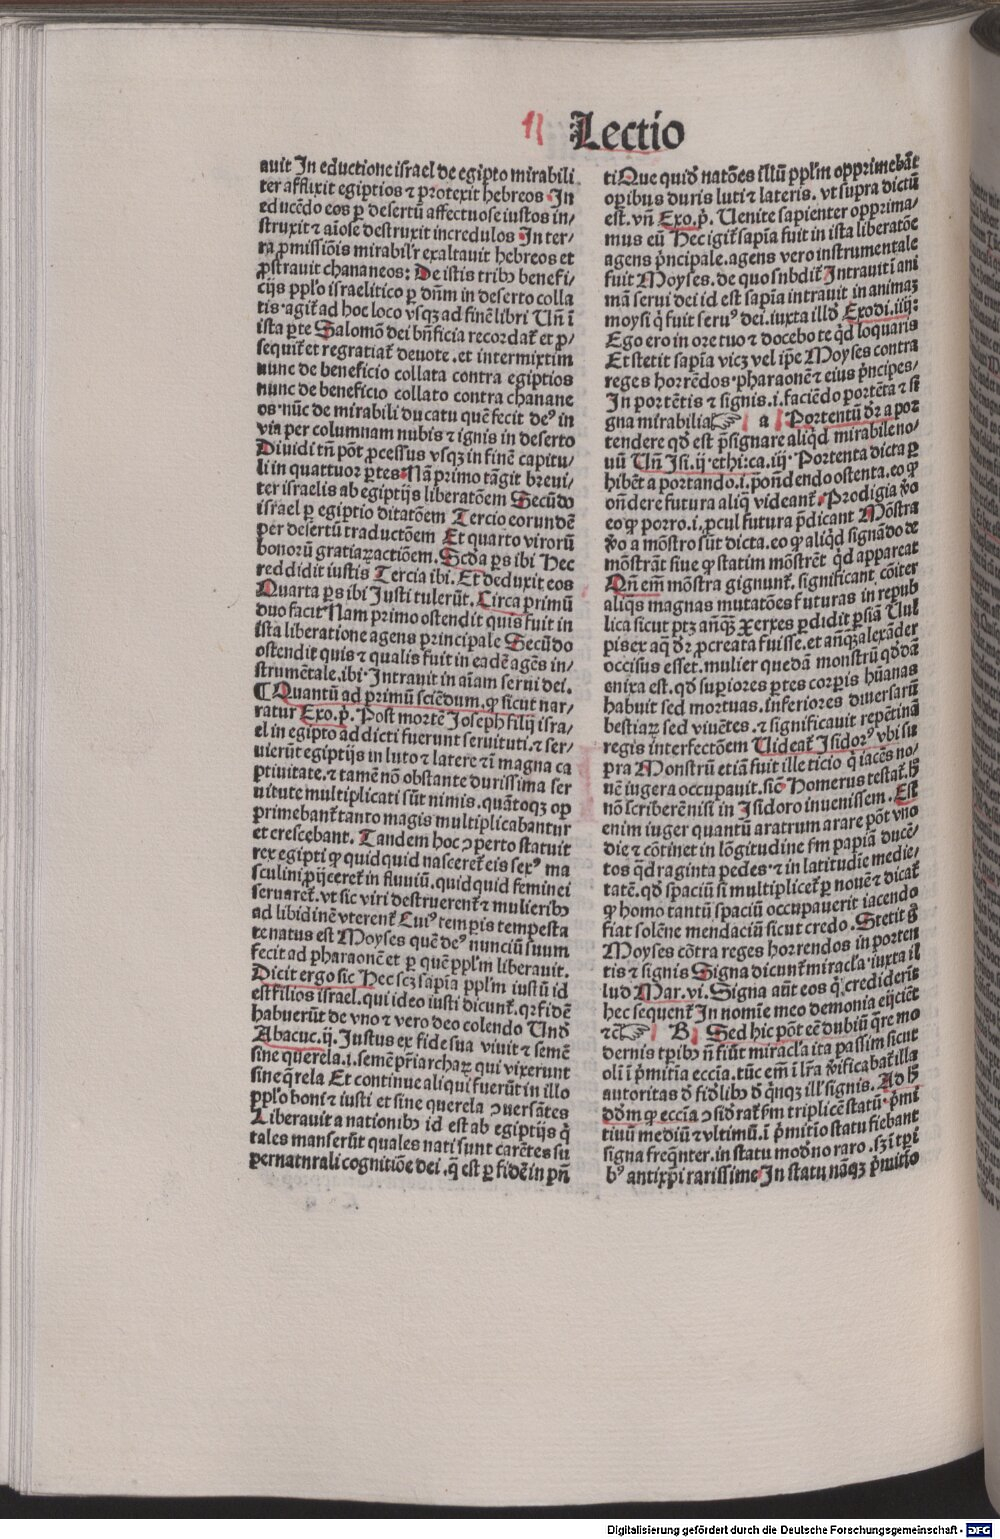 Lectio
auit In eductione israel de egipto mirabili
ter afflixit egiptios ⁊ ꝓtexit hebreos. In
educẽdo eos ꝑ desertũ affectuose iustos in/
struxit ⁊ aĩose destruxit incredulos In ter/
ra ꝓmissiõis mirabilr̃ exaltauit hebreos et
ꝓstrauit chananeos: De istis tribꝰ benefi/
cijs pplo israelitico ꝑ dñm in deserto colla
tis. agit᷑ ad hoc loco vsqꝫ ad finẽ libri Vñ ĩ
ista ꝑte Salomõ dei bñficia recordat᷑ et p/
sequit᷑ et regratiat᷑ deuote. et intermixtim
nunc de beneficio collata contra egiptios
nunc de beneficio collato contra chanane
os. nũc de mirabili ducatu quẽ fecit deꝰ in
via per columnam nubis ⁊ ignis in deserto
Diuidi tñ põt ꝓcessus vsqꝫ in finẽ capitu/
li in quattuor ꝑtes. Nã primo tãgit breui/
ter israelis ab egiptijs liberatõem Secũdo
israel ꝑ egiptio ditatõem Tercio eorundẽ
per desertũ traductõem Et quarto virorũ
bonorũ gratiaꝝ actiõem. Scd̃a ꝑs ibi Hec
reddidit iustis Tercia ibi. Et deduxit eos
Quarta ꝑs ibi Justi tulerũt. Circa primũ
duo facit Nam primo ostendit quis fuit in
ista liberatione agens principale Secũdo
ostendit quis ⁊ qualis fuit in eadẽ agẽs in/
strumẽtale. ibi. Intrauit in aĩam serui dei.
¶ Quantũ ad primũ sciẽdum. ꝙ sicut nar/
ratur Exo. p̃. Post mortẽ Joseph filij isra/
el in egipto addicti fuerunt seruituti. ⁊ ser/
uierũt egiptijs in luto ⁊ latere ⁊ ĩ magna ca
ptiuitate. ⁊ tamẽ nõ obstante durissima ser
uitute multiplicati sũt nimis. quãtoqꝫ op
primebant᷑ tanto magis multiplicabantur
et crescebant. Tandem hoc ꝯperto statuit
rex egipti ꝙ quidquid nasceret᷑ eis sexꝰ ma
sculini ꝓijceret᷑ in fluuiũ. quidquid feminei
seruaret᷑. vt sic viri destruerent᷑ ⁊ mulieribꝰ
ad libidinẽ vterent᷑ Cuiꝰ tempis tempesta
te natus est Moyses quẽ deꝰ nunciũ suum
fecit ad pharaonẽ et ꝑ quẽ pplm liberauit.
Dicit ergo sic Hec scꝫ sapĩa pplm iustũ id
est filios israel. qui ideo iusti dicunt᷑. qꝛ fidẽ
habuerũt de vno ⁊ vero deo colendo Und̃
Abacuc. ij. Justus ex fide sua viuit ⁊ semẽ
sine querela. i. semẽ pr̃iarchaꝝ qui vixerunt
sine q̃rela Et continue aliqui fuerũt in illo
pplo boni ⁊ iusti et sine querela ꝯuersãtes
Liberauit a nationibꝰ id est ab egiptijs q̃
tales manserũt quales nati sunt carẽtes su
pernatnrali cognitiõe dei. q̃ est ꝑ fidẽ in pñ
ti Que quid̃ natões illũ pplm opprimebãt
oꝑibus duris luti ⁊ lateris. vt supra dictũ
est. vñ Exo. p̃. Venite sapienter opprima/
mus eũ Hec igit᷑ sapĩa fuit in ista liberatõe
agens p̃ncipale. agens vero instrumentale
fuit Moyses. de quo snbdit᷑ Intrauit ĩ ani
mã serui dei id est sapĩa intrauit in animaꝫ
moysi q̃ fuit seruꝰ dei. iuxta illd̃ Exodi. iiij:
Ego ero in ore tuo ⁊ docebo te qd̃ loquaris
Et stetit sapĩa vicꝫ vel ip̃e Moyses contra
reges horrẽdos. pharaonẽ ⁊ eius p̃ncipes/
In portẽtis ⁊ signis. i. faciẽdo portẽta ⁊ si
gna mirabilia☞ a Portentũ dr̃ a por
tendere qd̃ est p̃signare aliqd̃ mirabile no/
uũ Vñ Isi. ij. ethi: ca. iij. Portenta dicta ꝑ
hibẽt a portando. i. p̃oñdendo ostenta. eo ꝙ
oñdere futura aliq̃ videant᷑. Prodigia ṽo
eo ꝙ porro. i. ꝓcul futura p̃dicant Mõstra
ṽo a mõstro sũt dicta. eo ꝙ aliqd̃ signãdo de
mõstrãt siue ꝙ statim mõstrẽt qd̃ appareat
Qñ em̃ mõstra gignunt᷑. significant cõiter
aliq̃s magnas mutatões futuras in repub
lica sicut ptꝫ añqꝫ̃ Xerxes ꝑdidit ꝑsiã Vul
pis ex aq̃ dr̃ ꝓcreata fuisse. et añqꝫ̃ alexãder
occisus esset. mulier quedã monstrũ qd̃dã
enixa est. qd̃ supiores ꝑtes corpis hũanas
habuit sed mortuas. inferiores diuersarũ
bestiaꝝ sed viuẽtes. ⁊ significauit repẽtinã
regis interfectõem Videat᷑ Isidorꝰ vbi su
pra Monstrũ etiã fuit ille ticio q̃ iacẽs no/
uẽ iugera occupauit. sic̃ Homerus testat᷑. hͦ
nõ scriberẽ nisi in Isidoro inuenissem. Est
enim iuger quantũ aratrum arare põt vno
die ⁊ cõtinet in lõgitudine fm papiã ducẽ/
tos qd̃raginta pedes. ⁊ in latitudie medie/
tatẽ. qd̃ spaciũ si multiplicet᷑ ꝑ nouẽ ⁊ dicat᷑
ꝙ homo tantũ spaciũ occupauerit iacendo
fiat solẽne mendaciũ sicut credo. Stetit g̊
Moyses cõtra reges horrendos in porten
tis ⁊ signis Signa dicunt᷑ miracla. iuxta il
lud Mar. vi. Signa aũt eos q̃ crediderĩt
hec sequent᷑ In nomĩe meo demonia eijciẽt
⁊c̃☞ B Sed hic põt eẽ dubiũ q̃re mo
dernis tꝑibꝰ ñ fiũt miracla ita passim sicut
oli ĩ p̃mitĩa eccĩa. tũc em̃ ĩ lr̃a ṽificabat᷑ illa
autoritas d̃ fid̃libꝰ d̃ q̃nqꝫ ill signis. Ad hͦ
dd̃m ꝙ eccĩa ꝯsid̃rat᷑ fm triplicẽ statũ. p̃mi
tiuũ mediũ ⁊ vltimũ. ĩ p̃mitĩo statu fiebant
signa freq̃nter. in statu mod̃no raro. sꝫ ĩ tꝑi
bꝰ antixp̃i rarissime In statu nãqꝫ p̃mitĩo
Digitalisierung gefördert durch die Deutsche Forschungsgemeinschaft - DFG